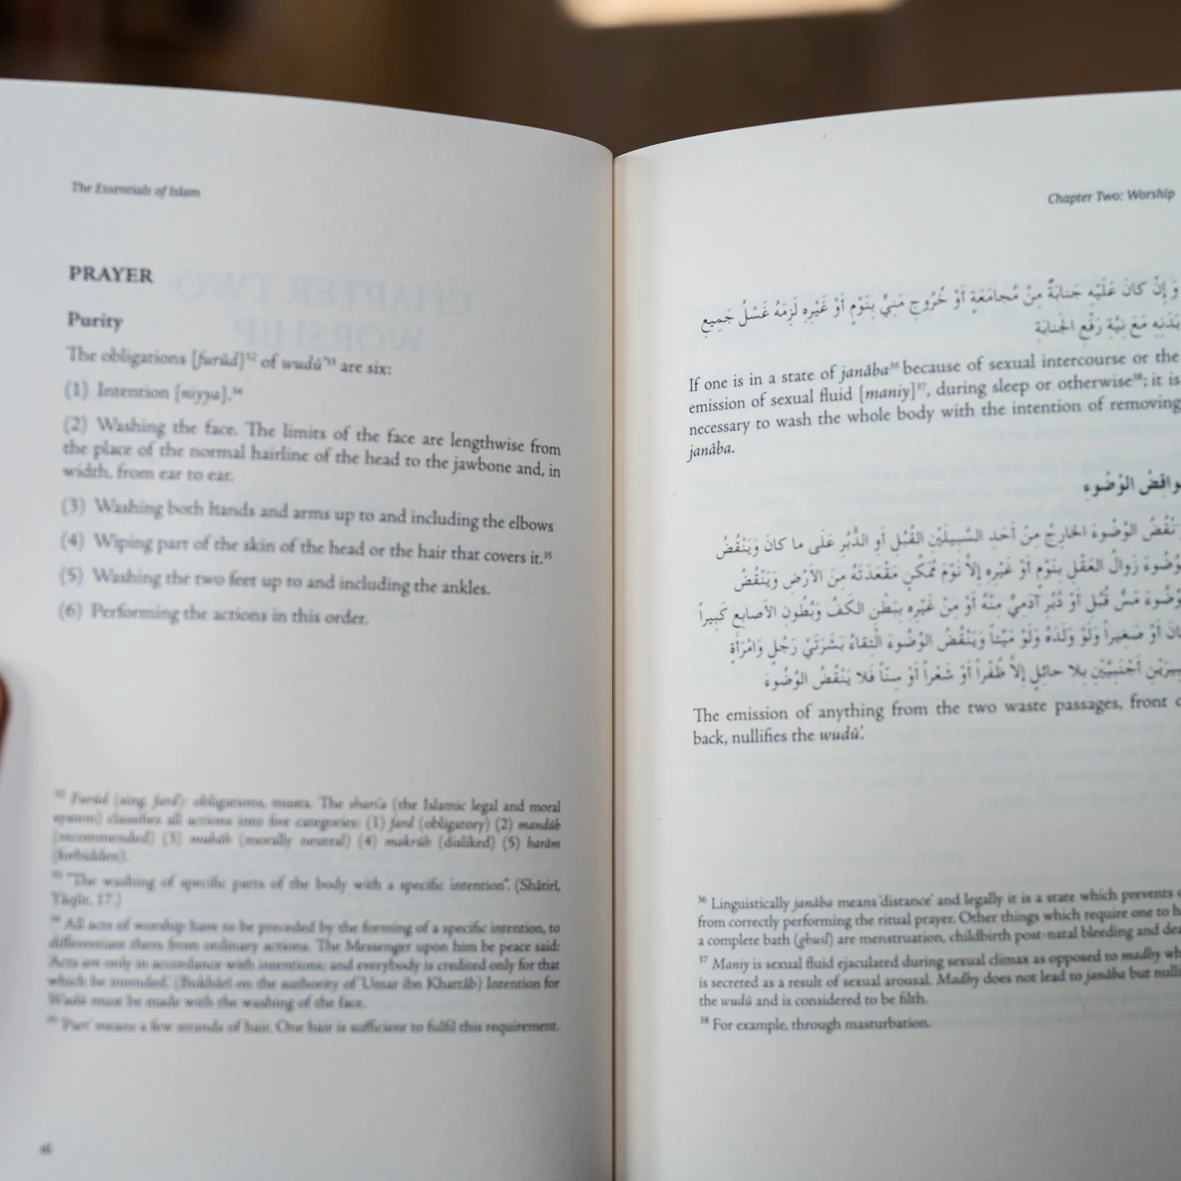 The Essentials of Islam
PRAYER
Purity
The obligations [furūd]³² of wudū'³³ are six:
(1) Intention [niyya].³⁴
(2) Washing the face. The limits of the face are lengthwise from
the place of the normal hairline of the head to the jawbone and, in
width, from ear to ear.
(3) Washing both hands and arms up to and including the elbows
(4) Wiping part of the skin of the head or the hair that covers it.³⁵
(5) Washing the two feet up to and including the ankles.
(6) Performing the actions in this order.
³² Furūd (sing. fard): obligations, musts. The sharī'a (the Islamic legal and moral
system) classifies all actions into five categories: (1) fard (obligatory) (2) mandūb
(recommended) (3) mubāh (morally neutral) (4) makrūh (disliked) (5) harām
(forbidden).
³³ "The washing of specific parts of the body with a specific intention". (Shātirī,
17.)
³⁴ All acts of worship have to be preceded by the forming of a specific intention, to
differentiate them from ordinary actions. The Messenger upon him be peace said:
'Acts are only in accordance with intentions, and everybody is credited only for that
which he intended.' (Bukhārī on the authority of 'Umar ibn Khattāb) Intention for
Wudū must be made with the washing of the face.
³⁵ 'Part' means a few strands of hair. One hair is sufficient to fulfil this requirement.
Chapter Two: Worship
وَإِنْ كانَ عَلَيْهِ جَنابَةٌ مِنْ مُجامَعَةٍ أَوْ خُرُوجِ مَنِيٍّ بِنَوْمٍ أَوْ غَيْرِهِ لَزِمَهُ غَسْلُ جَمِيعِ
بَدَنِهِ مَعَ نِيَّةِ رَفْعِ الجَنابَةِ
If one is in a state of janāba³⁶ because of sexual intercourse or the
emission of sexual fluid [maniy]³⁷, during sleep or otherwise³⁸; it is
necessary to wash the whole body with the intention of removing
janāba.
واقِضُ الوُضُوءِ
تَنْقُضُ الوُضُوءَ الخارِجُ مِنْ أَحَدِ السَّبِيلَيْنِ القُبُلِ أَوِ الدُّبُرِ عَلَى ما كانَ وَيَنْقُضُ
وُضُوءَ زَوالُ العَقْلِ بِنَوْمٍ أَوْ غَيْرِهِ إِلاَّ نَوْمَ مُمَكِّنٍ مَقْعَدَتَهُ مِنَ الأَرْضِ وَيَنْقُضُ
وُضُوءَ مَسُّ قُبُلِ أَوْ دُبُرِ آدَمِيٍّ مِنْهُ أَوْ مِنْ غَيْرِهِ بِبَطْنِ الكَفِّ وَبُطُونِ الأَصابِعِ كَبِيراً
انَ أَوْ صَغِيراً وَلَوْ وَلَدَهُ وَلَوْ مَيِّتاً وَيَنْقُضُ الوُضُوءَ الْتِقاءُ بَشَرَتَيْ رَجُلٍ وَامْرَأَةٍ
بِيرَيْنِ أَجْنَبِيَّيْنِ بِلا حائِلٍ إِلاَّ ظُفْراً أَوْ شَعْراً أَوْ سِنّاً فَلا يَنْقُضُ الوُضُوءَ
The emission of anything from the two waste passages, front
back, nullifies the wudū'.
³⁶ Linguistically janāba means 'distance' and legally it is a state which prevents
from correctly performing the ritual prayer. Other things which require one to
a complete bath (ghusl) are menstruation, childbirth post-natal bleeding and
³⁷ Maniy is sexual fluid ejaculated during sexual climax as opposed to madhy
is secreted as a result of sexual arousal. Madhy does not lead to janāba but
the wudū and is considered to be filth.
³⁸ For example, through masturbation.